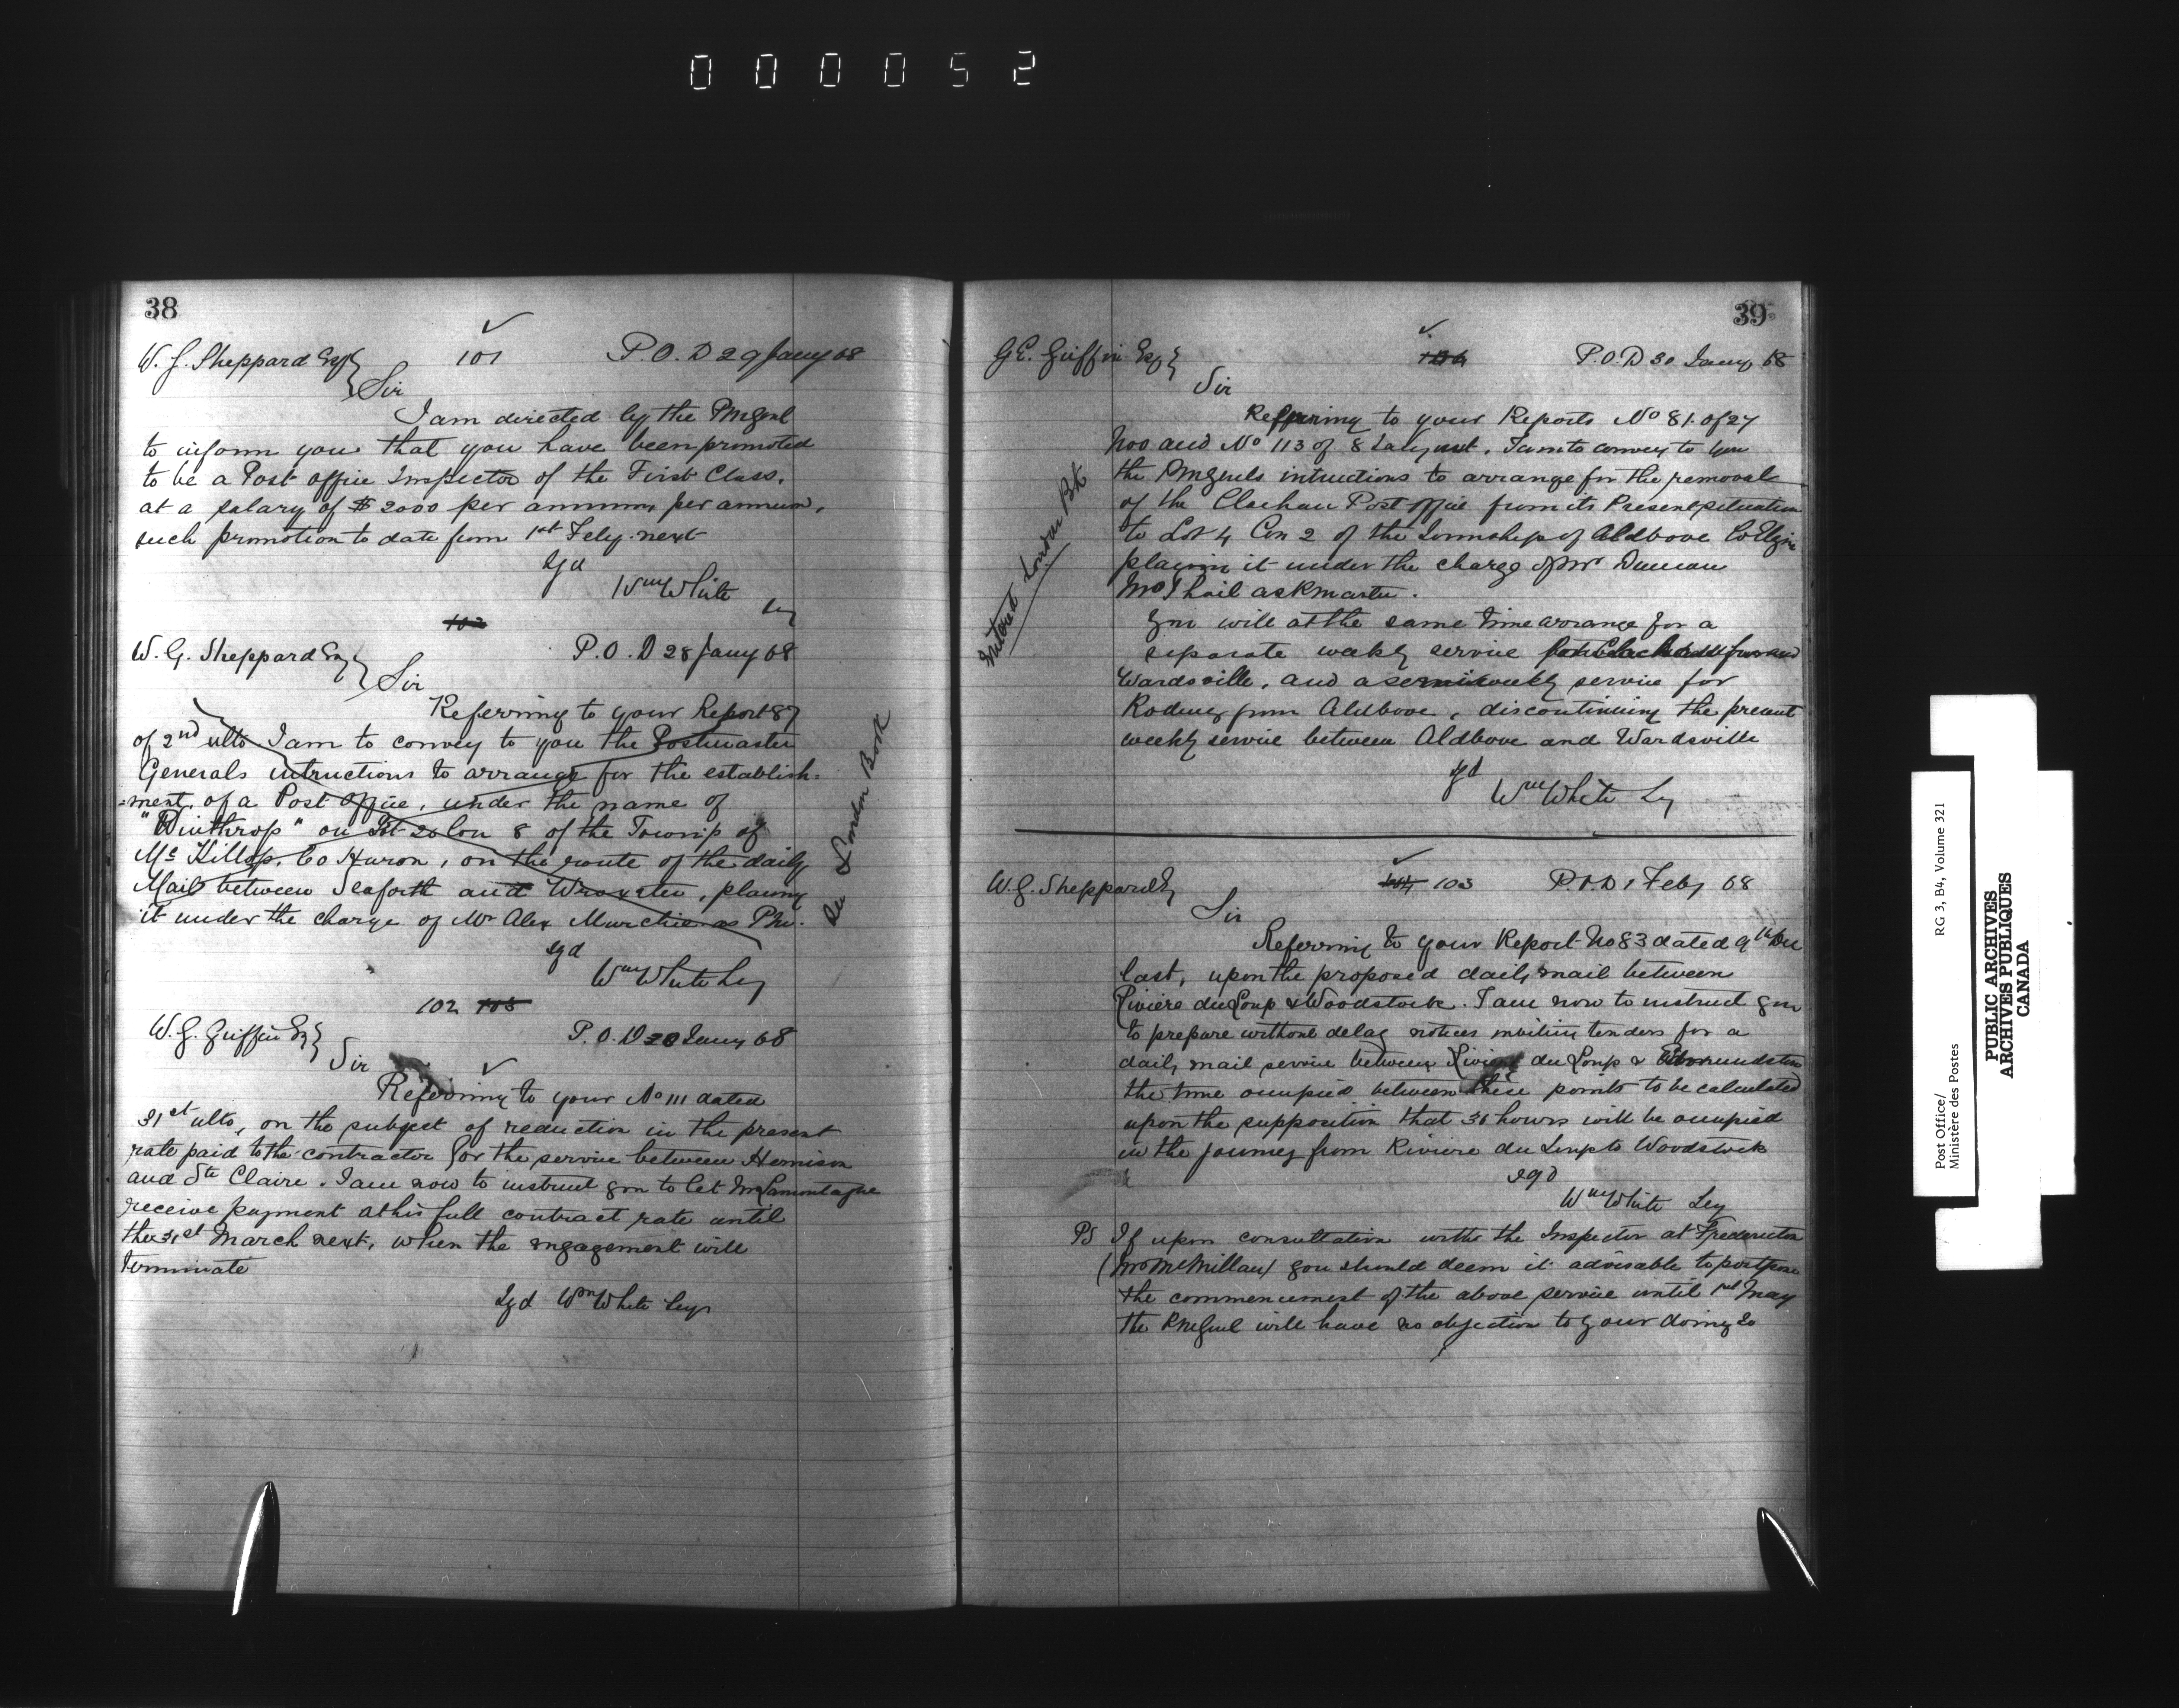 000052
38
W. G. Sheppard Esq
101
P.O.D 29 Jany 68
Sir
I am directed by the PMGenl
to inform you that you have been promoted
to be a Post office Inspector of the First Class,
at a salary of $2000 per annum, per annum,
such promotion to date from 1st Feby. next
Sgd
Wm White
Sy
102
W. G. Sheppard Esq
P.O.D 28 Jany 68
Sir
Referring to your Report 87
of 2nd ulto I am to convey to you the Postmaster
Generals intructions to arrange for the establish-
=ment, of a Post Office, under the name of
"Winthrop" on Lot 20 Con 8 of the Townip of
Mc Killop, Co Huron, on the route of the daily
Mail between Seaforth and Wroxeter, placing
it under the charge of Mr Alex Murchie as PM.
sgd
Wm White Sey
See London Book
102 103
W. G. Griffin Esq
P.O.D 28 Jany 68
Sir
Referring to your No 111 dated
31st ulto, on the subject of reduction in the present
rate paid to the contractor for the service between Hemison
and Ste Claire. I am now to instruct you to let Mr Lamontagne
receive payment at his full contract rate until
the 31st March next, when the engagement will
terminate
Sgd Wm White Secy
39
G.E. Griffin Esq
104
P.O.D 30 Jany 68
Sir
Referring to your Reports No 81. of 27
Nov and No 113 of 8 Jany inst. I am to convey to you
the PMGenls intructions to arrange for the removal
of the Clachan Post Office from its Present situation
to Lot 4 Con 2 of the Township of Aldbove Co Elgin
placing it under the charge of Mr Duncan
McPhail as PMaster.
You will at the same time arrange for a
separate weekly service for Clachan from
Wardsville, and a semiweekly service for
Rodney from Aldbove, discontinuing the present
weekly service between Aldbove and Wardsville
sgd
Wm White Sy
Entered London Bk
W.G. Sheppard Esq
104 103
P.O.D 1 Feby 68
Sir
Referring to your Report No 83 dated 9th Dec
last, upon the proposed daily mail between
Riviere du Loup & Woodstock. I am now to instruct you
to prepare without delay notices inviting tenders for a
daily mail service between Riviere du Loup & Edmundston
the time occupied between these points to be calculated
upon the supposition that 36 hours will be occupied
in the journey from Riviere du Loup to Woodstock
sgd
Wm White Sey
PS If upon consultation with the Inspector at Fredericton
(Mr McMillan) you should deem it advisable to postpone
the commencement of the above service until 1st May
the PMGenl will have no objection to your doing so
Post Office/
Ministère des Postes
RG 3, B4, Volume 321
PUBLIC ARCHIVES
ARCHIVES PUBLIQUES
CANADA